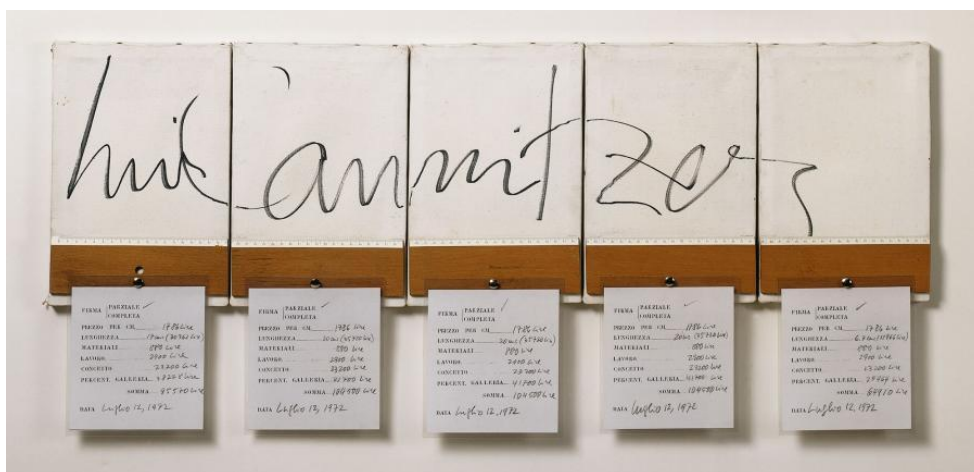 luis Camnitzer
FIRMA PARZIALE
COMPLETA
PREZZO PER CM 1786 Lire
LENGHEZZA 17 cm (30362 Lire)
MATERIALI 880 Lire
LAVORO 2900 Lire
CONCETTO 23200 Lire
PERCENT. GALLERIA 38228 Lire
SOMMA 95570 Lire
DATA Luglio 12, 1972
FIRMA PARZIALE
COMPLETA
PREZZO PER CM 1786 Lire
LENGHEZZA 20 cm (35720 Lire)
MATERIALI 880 Lire
LAVORO 2900 Lire
CONCETTO 23200 Lire
PERCENT. GALLERIA Lire
SOMMA 104500 Lire
DATA Luglio 12, 1972
FIRMA PARZIALE
COMPLETA
PREZZO PER CM 1786 Lire
LENGHEZZA 20 cm (35720 Lire)
MATERIALI 880 Lire
LAVORO 2900 Lire
CONCETTO 23200 Lire
PERCENT. GALLERIA 41800 Lire
SOMMA 104500 Lire
DATA Luglio 12, 1972
FIRMA PARZIALE
COMPLETA
PREZZO PER CM 1786 Lire
LENGHEZZA 20 cm (35720 Lire)
MATERIALI 880 Lire
LAVORO 2900 Lire
CONCETTO 23200 Lire
PERCENT. GALLERIA 41800 Lire
SOMMA 104500 Lire
DATA Luglio 12, 1972
FIRMA PARZIALE
COMPLETA
PREZZO PER CM 1786 Lire
LENGHEZZA 6.7 cm (11966 Lire)
MATERIALI 880 Lire
LAVORO 2900 Lire
CONCETTO 23200 Lire
PERCENT. GALLERIA 25964 Lire
SOMMA 64910 Lire
DATA Luglio 12, 1972